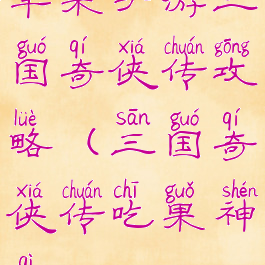 苹果手游三
guó qí xiá chuán gōng
国奇侠传攻
lüè sān guó qí
略（三国奇
xiá chuán chī guǒ shén
侠传吃果神
qì